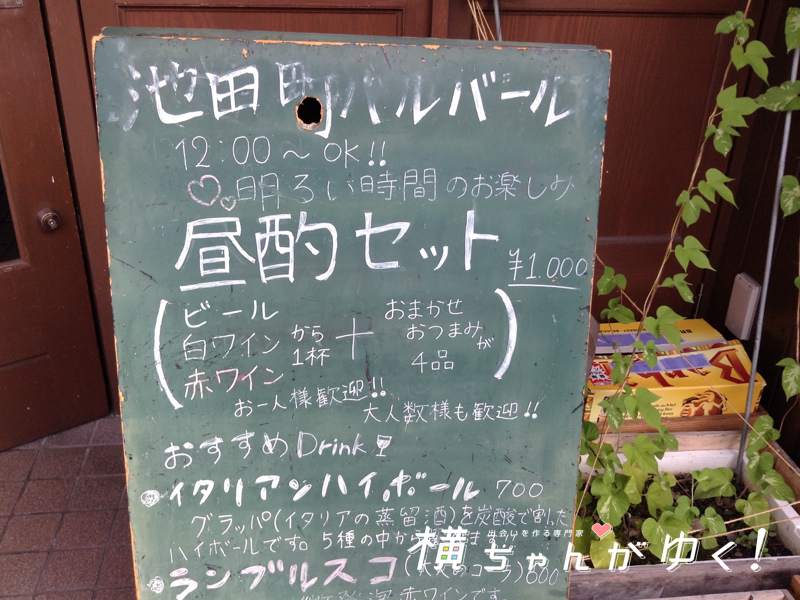 池田町バルバール
12:00～OK!!
明るい時間のお楽しみ
昼酌セット ¥1.000
(ビール
白ワイン
赤ワイン
から
1杯
+
おまかせ
おつまみが
4品)
お一人様歓迎!!
大人数様も歓迎!!
おすすめDrink
イタリアンハイボール 700
グラッパ(イタリアの蒸留酒)を炭酸で割った
ハイボールです。5種の中から
ランブルスコ(大人のコーラ)600
赤ワインです。
出会いを作る専門家
横ちゃんがゆく!